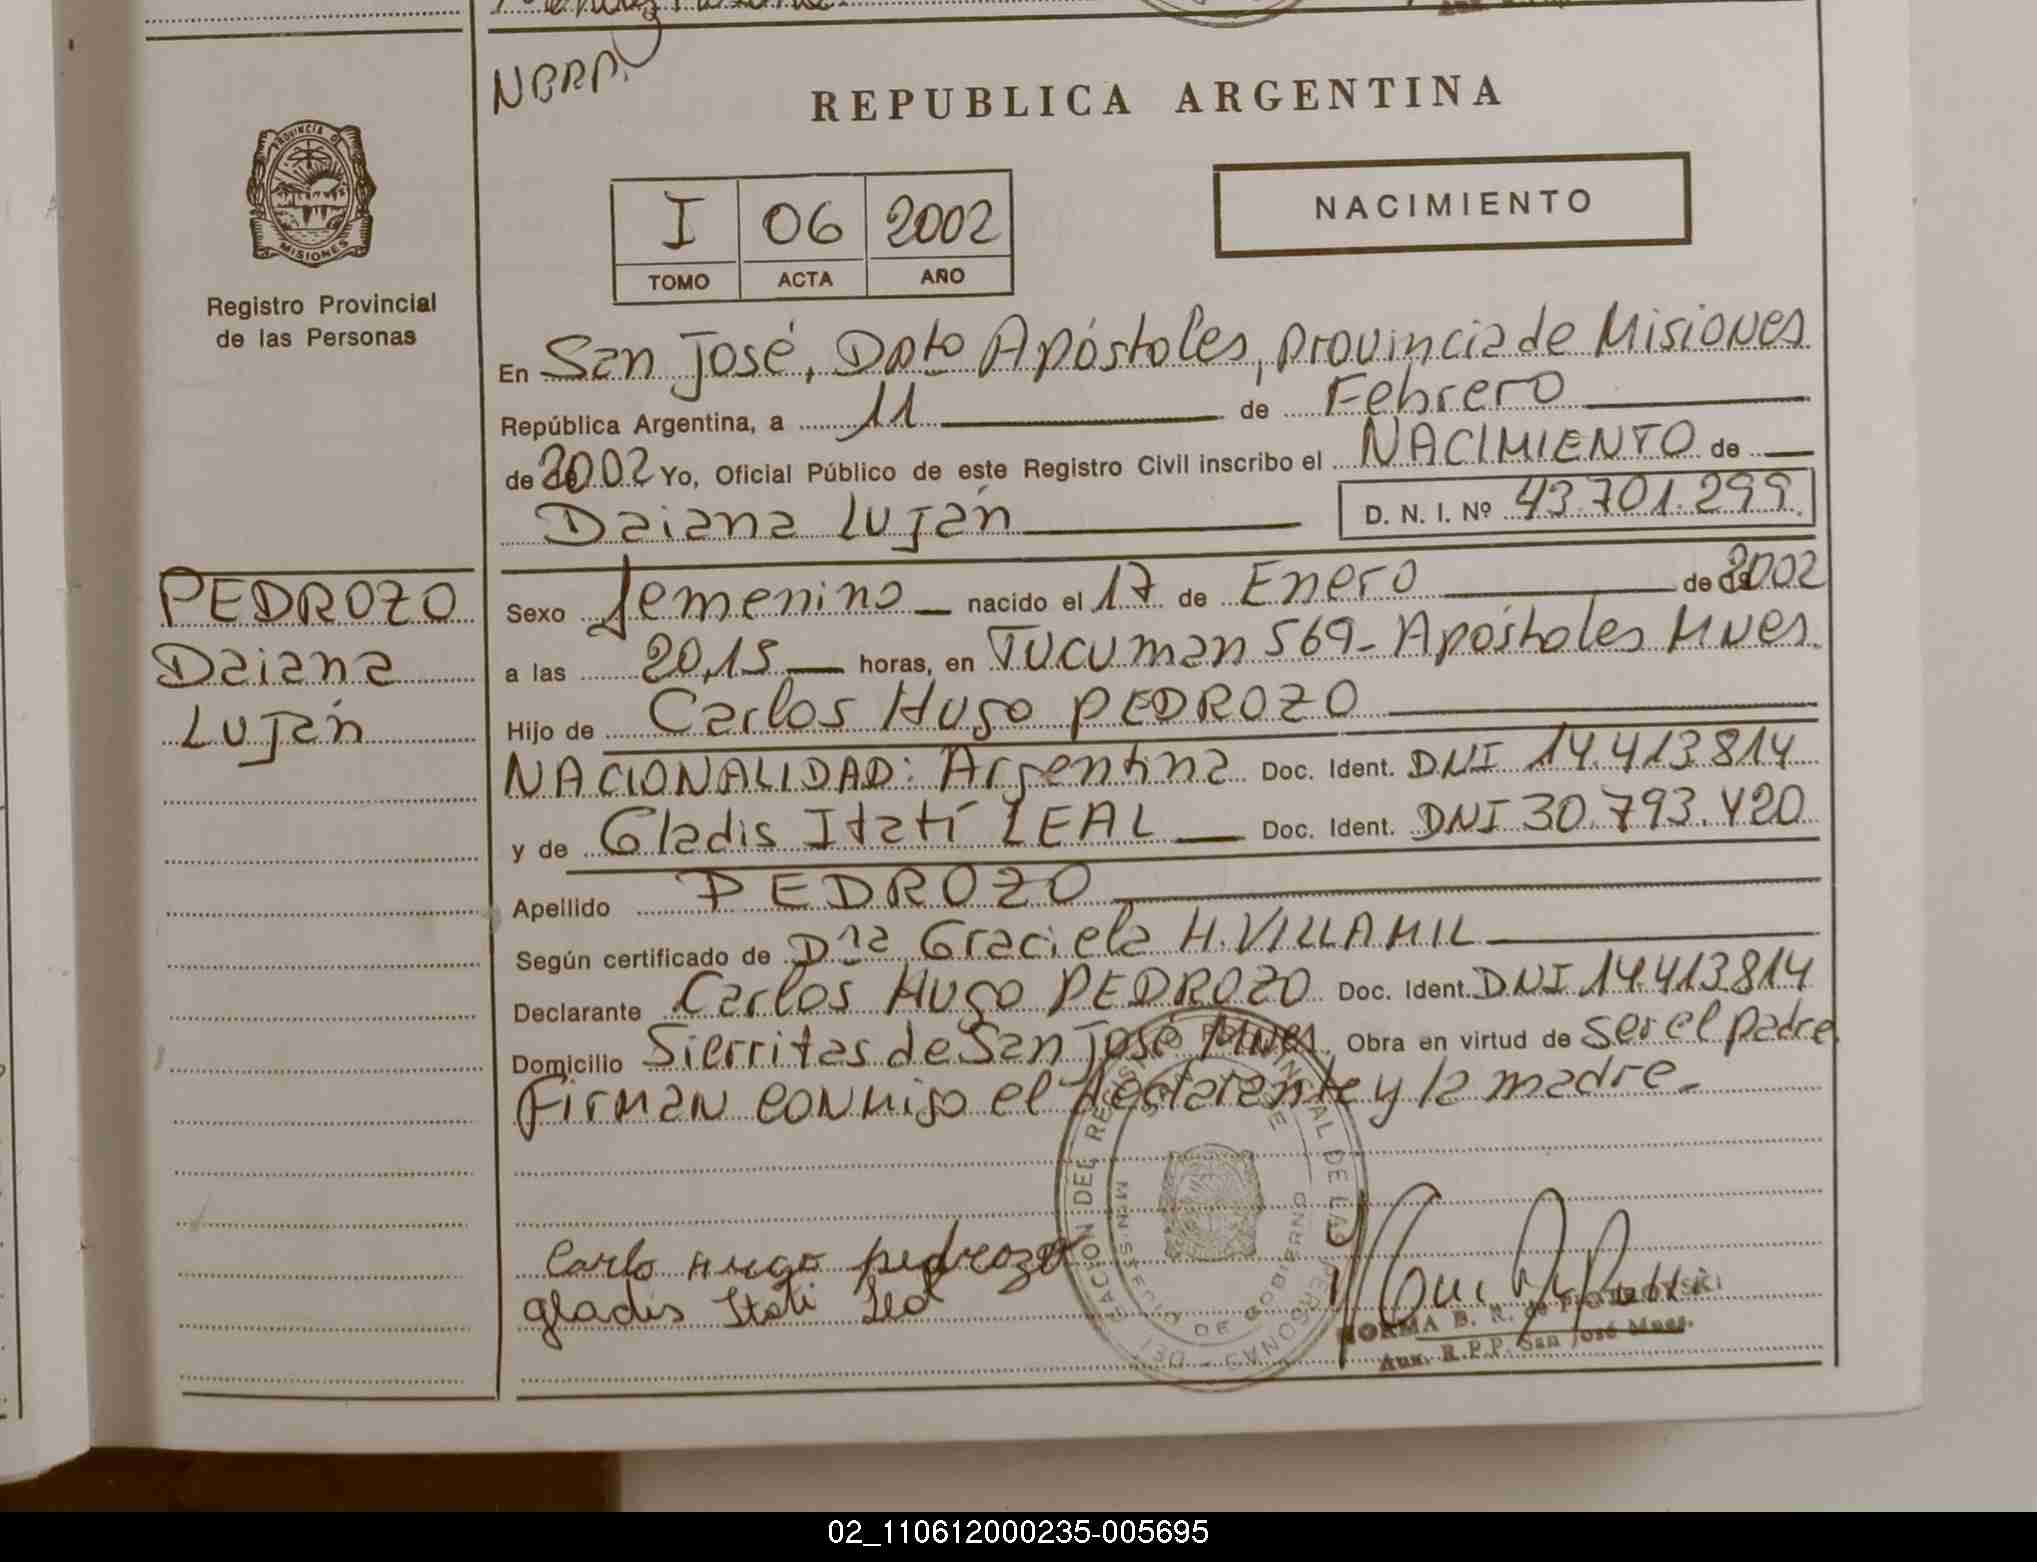 NBRP.
REPUBLICA ARGENTINA
PROVINCIA DE
MISIONES
Registro Provincial
de las Personas
I 06 2002
TOMO ACTA AÑO
NACIMIENTO
En San José, Dpto Apóstoles, provincia de Misiones
República Argentina, a 11 de Febrero
de 2002 Yo, Oficial Público de este Registro Civil inscribo el NACIMIENTO de
Daiana Luján D. N. I. Nº 43.701.299
PEDROZO
Daiana
Luján
Sexo femenino nacido el 17 de Enero de 2002
a las 20,15 horas, en Tucuman 569- Apóstoles Mnes.
Hijo de Carlos Hugo PEDROZO
NACIONALIDAD: Argentina Doc. Ident. DNI 14.413.814
y de Gladis Itatí LEAL Doc. Ident. DNI 30.793.420
Apellido PEDROZO
Según certificado de Dra Graciela H. VILLAMIL
Declarante Carlos Hugo PEDROZO Doc. Ident. DNI 14.413.814
Domicilio Sierritas de San José Mnes. Obra en virtud de ser el padre
Firman conmigo el declarante y la madre.
Carlo Hugo pedrozo
gladis Itati Leal
NORMA B. R. de
Aux. R.P.P. San José Mnes.
02_110612000235-005695